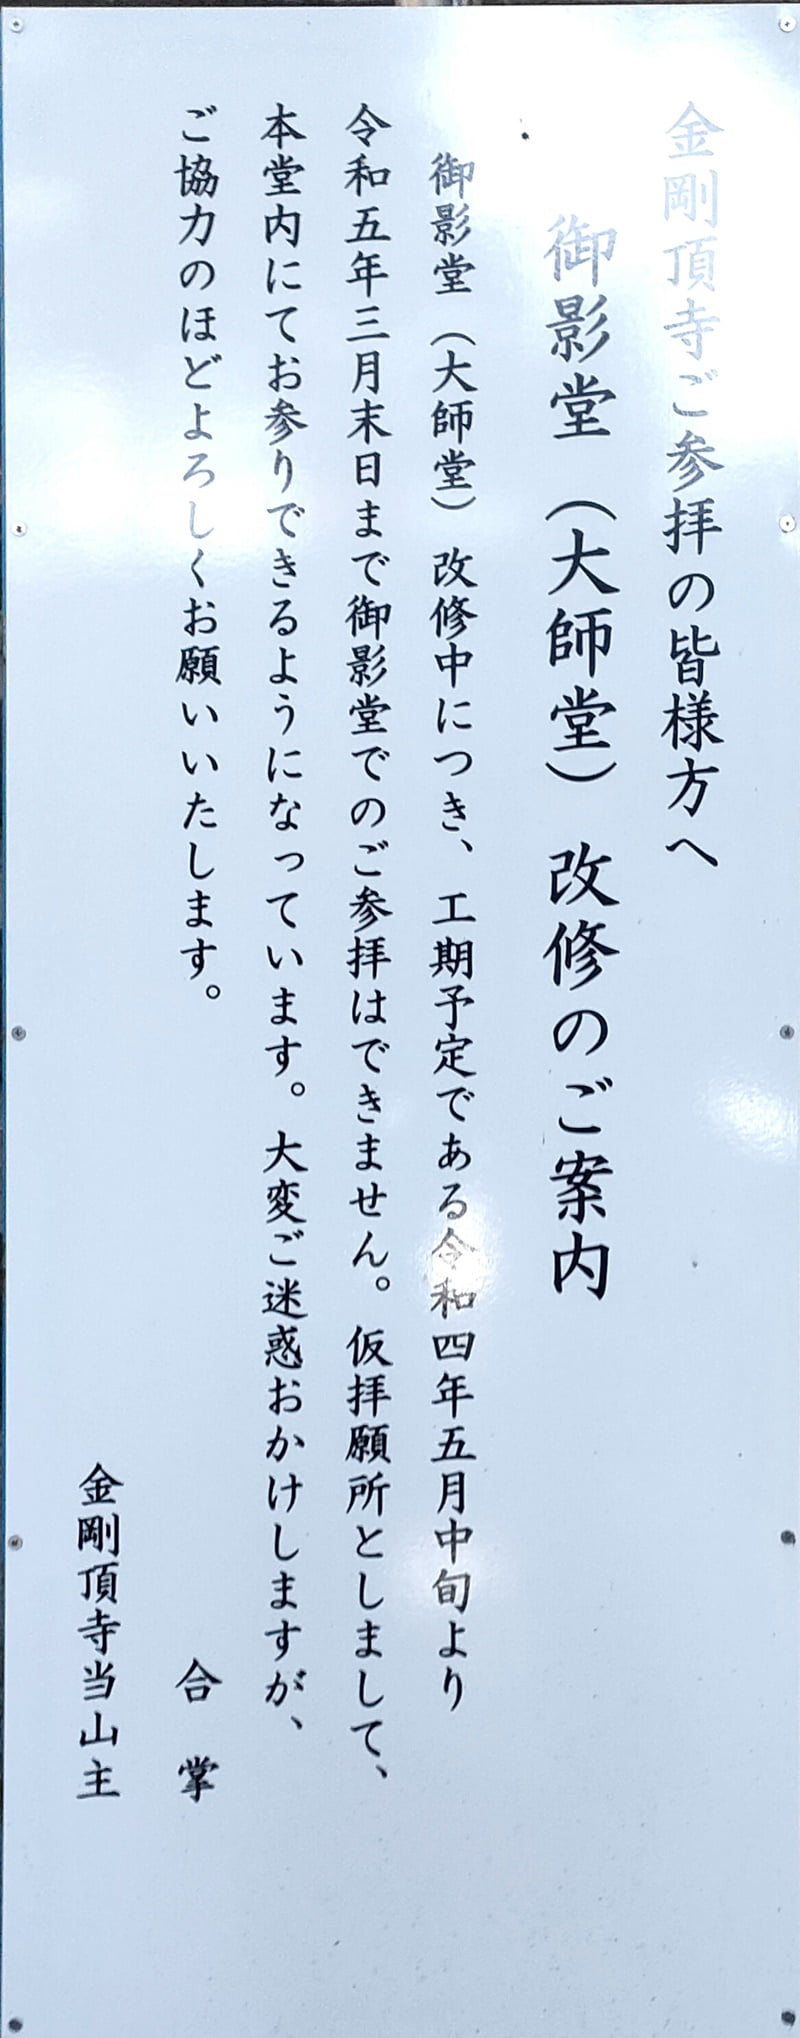 金剛頂寺ご参拝の皆様方へ
御影堂（大師堂）改修のご案内
御影堂（大師堂）改修中につき、工期予定である令和四年五月中旬より
令和五年三月末日まで御影堂でのご参拝はできません。仮拝願所としまして、
本堂内にてお参りできるようになっています。大変ご迷惑おかけしますが、
ご協力のほどよろしくお願いいたします。
合掌
金剛頂寺当山主